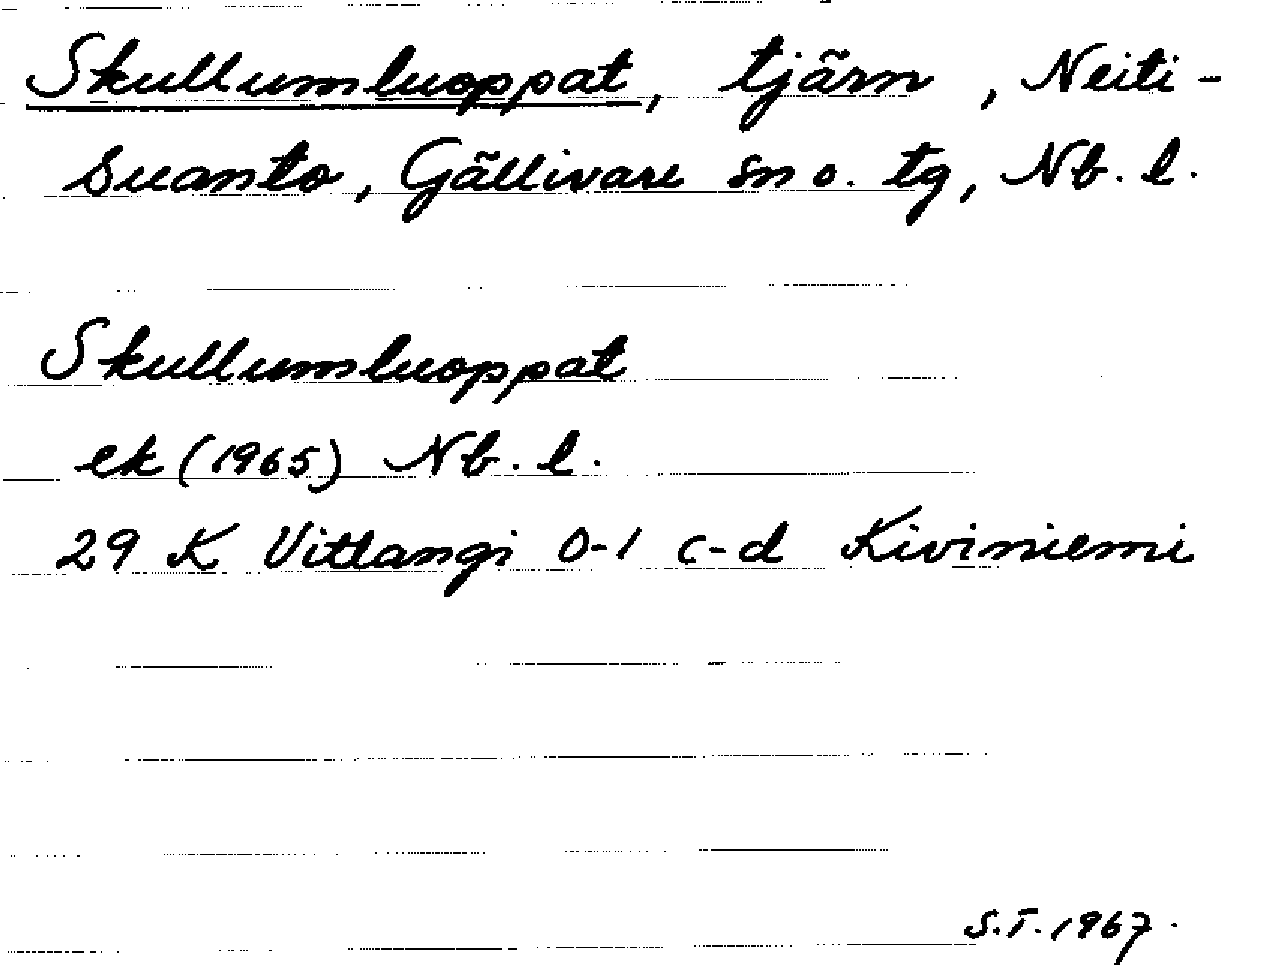 Skullumluoppat, tjärn, Neiti-
suanto, Gällivare sn o. tg, Nb. l.
Skullumluoppat
ek (1965) Nb. l.
29 K Vittangi 0-1 c-d Kiviniemi
S.T. 1967.